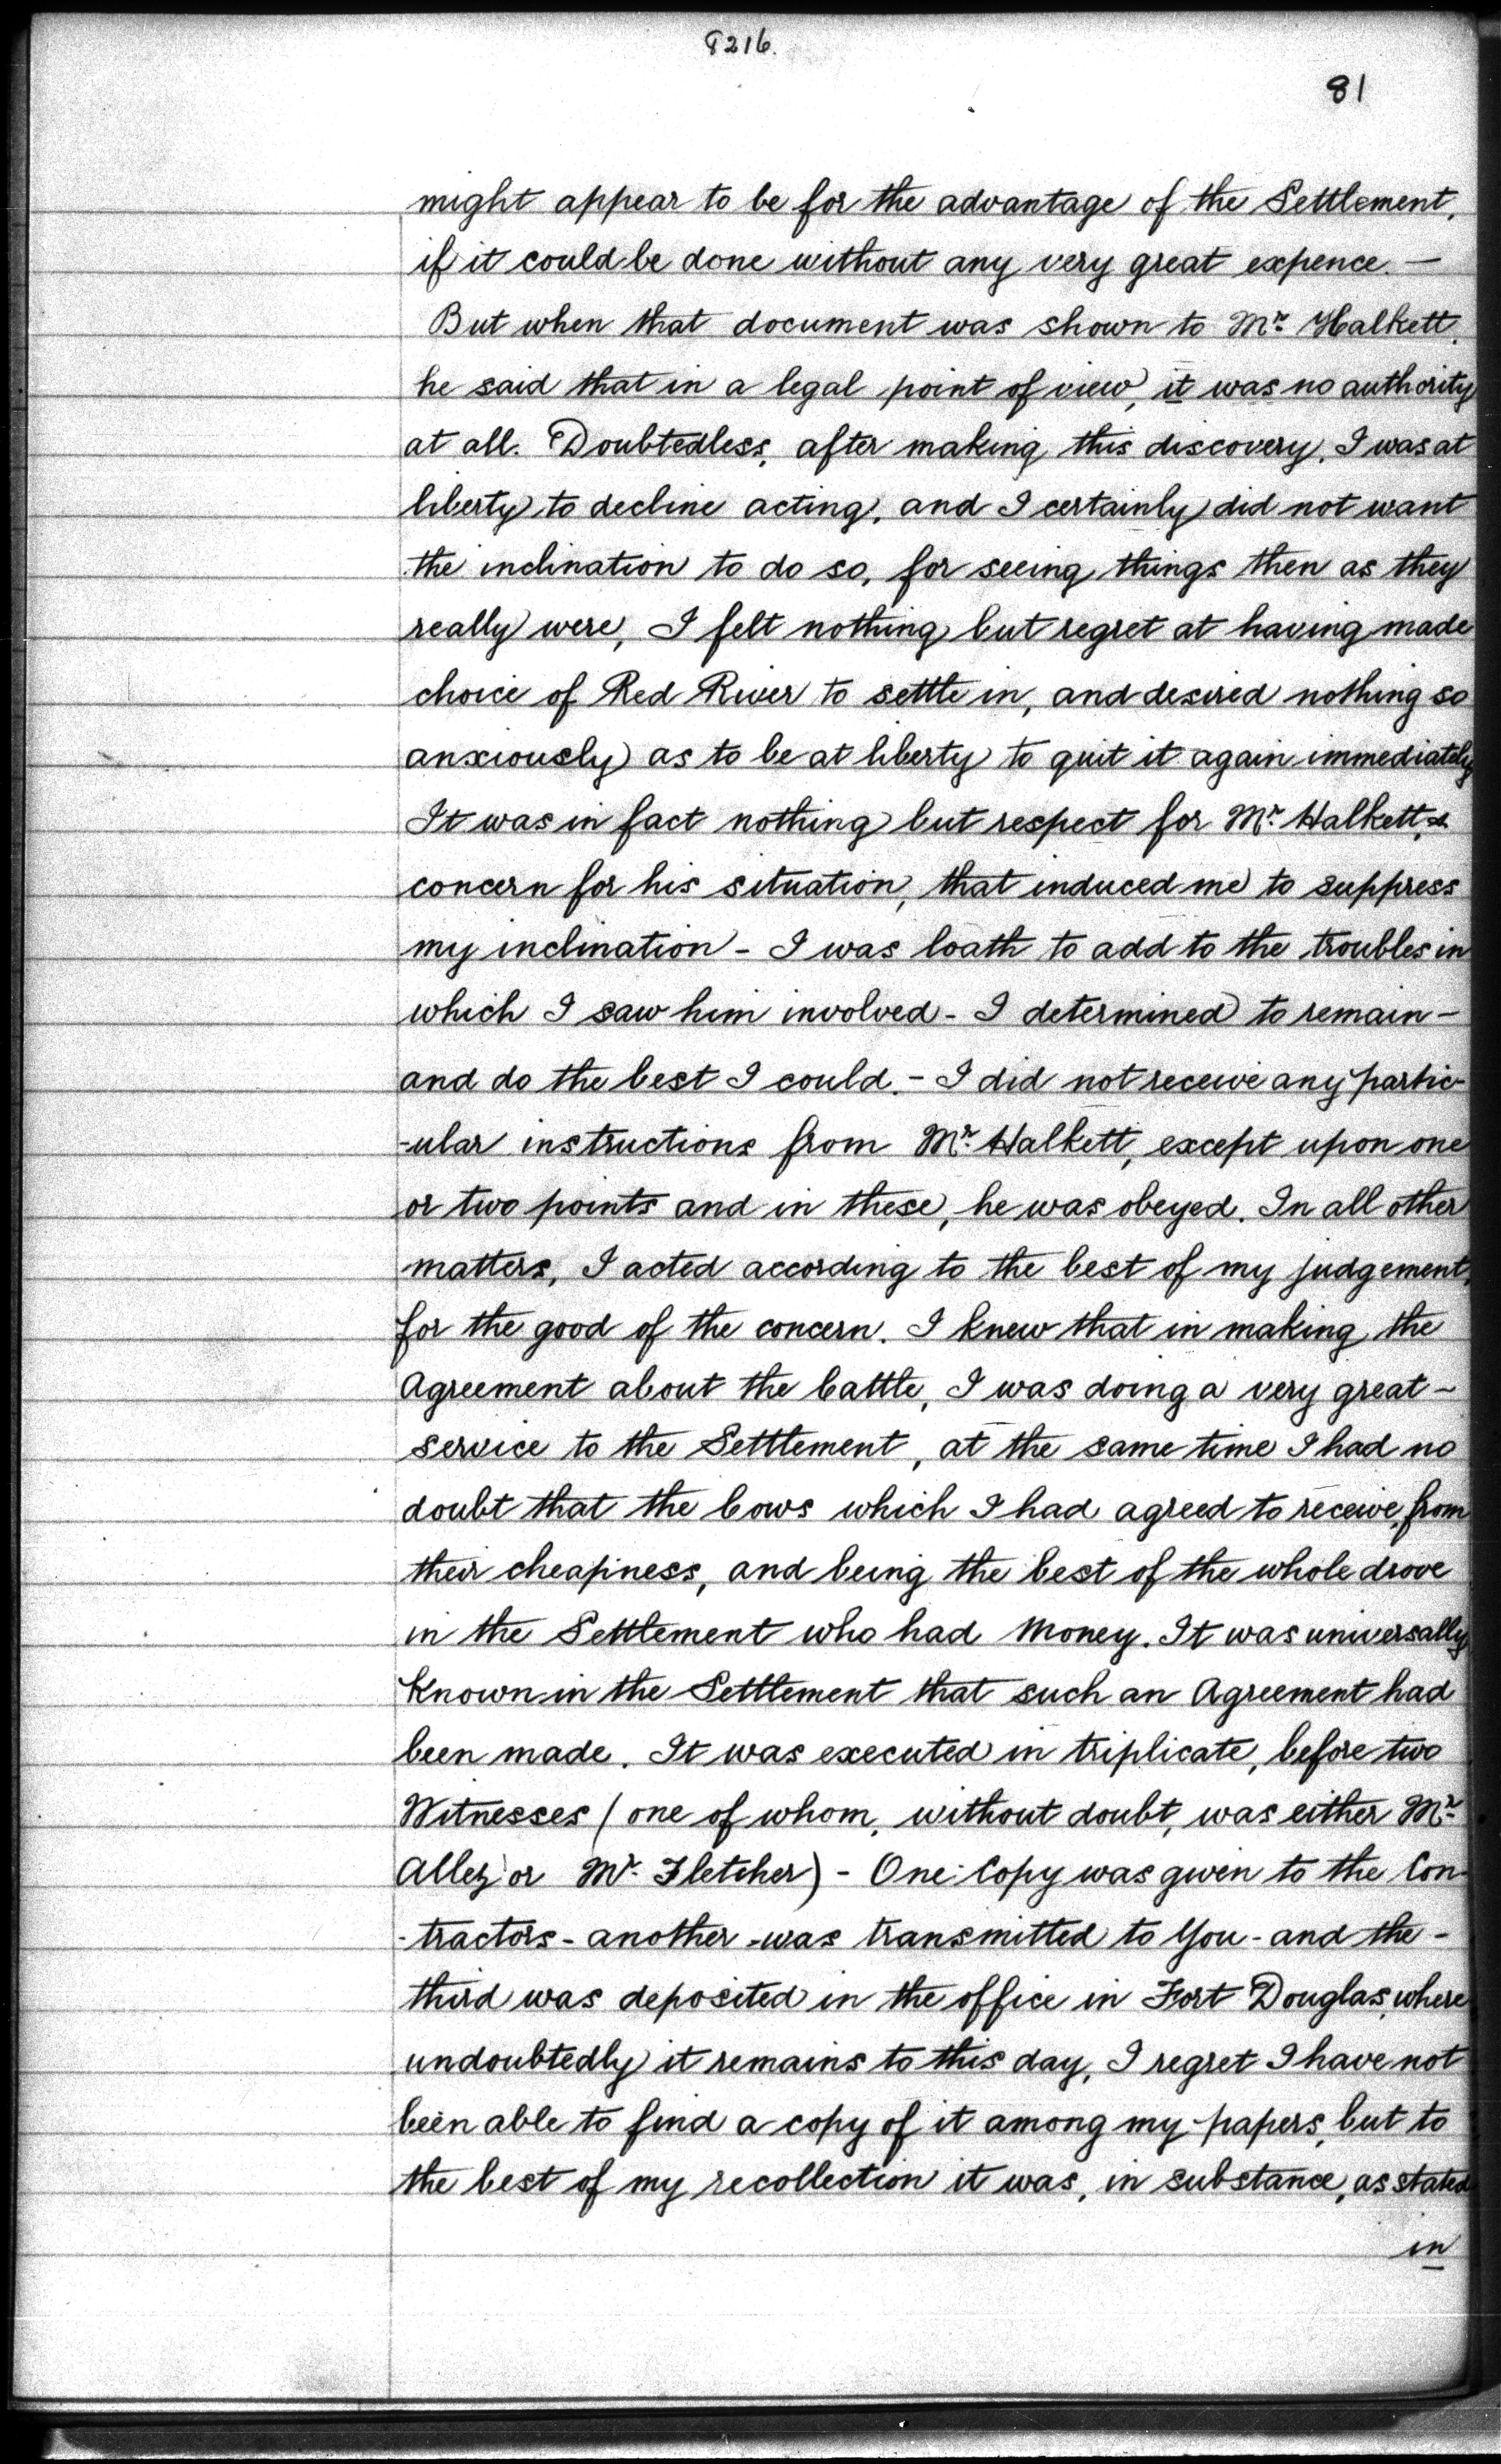 8216.
81
might appear to be for the advantage of the Settlement,
if it could be done without any very great expence. —
But when that document was shown to Mr. Halkett,
he said that in a legal point of view, it was no authority
at all. Doubtedless, after making this discovery, I was at
liberty to decline acting, and I certainly did not want
the inclination to do so, for seeing things then as they
really were, I felt nothing but regret at having made
choice of Red River to settle in, and desired nothing so
anxiously as to be at liberty to quit it again immediately
It was in fact nothing but respect for Mr. Halkett, &
concern for his situation, that induced me to suppress
my inclination - I was loath to add to the troubles in
which I saw him involved - I determined to remain -
and do the best I could. - I did not receive any partic-
-ular instructions from Mr. Halkett, except upon one
or two points and in these, he was obeyed. In all other
matters, I acted according to the best of my judgement,
for the good of the concern. I knew that in making the
Agreement about the Cattle, I was doing a very great -
service to the Settlement, at the same time I had no
doubt that the Cows which I had agreed to receive, from
their cheapness, and being the best of the whole drove
in the Settlement who had Money. It was universally
known in the Settlement that such an Agreement had
been made. It was executed in triplicate, before two
Witnesses (one of whom, without doubt, was either Mr.
Allez or Mr. Fletcher) - One Copy was given to the Con-
-tractors - another was transmitted to You - and the -
third was deposited in the office in Fort Douglas, where
undoubtedly it remains to this day, I regret I have not
been able to find a copy of it among my papers, but to
the best of my recollection it was, in substance, as stated
in